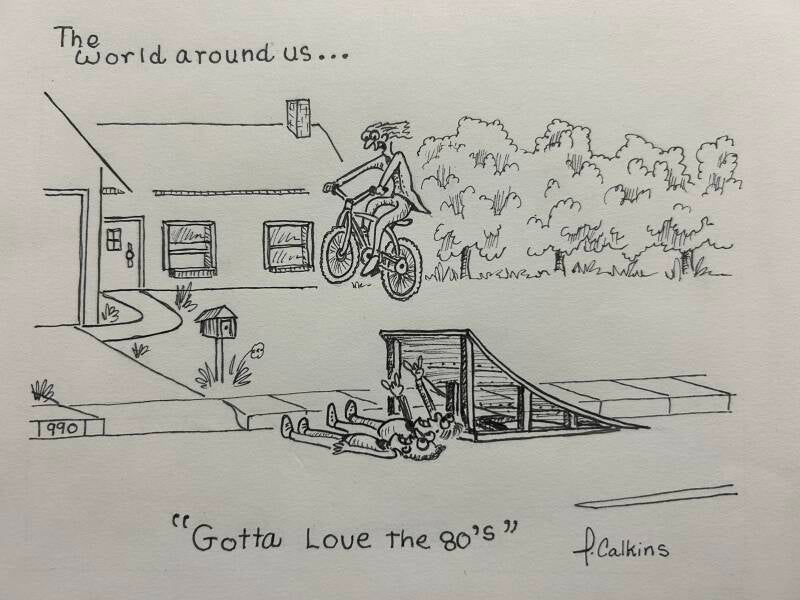 The
world around us...
1990
"Gotta Love the 80's"
P. Calkins